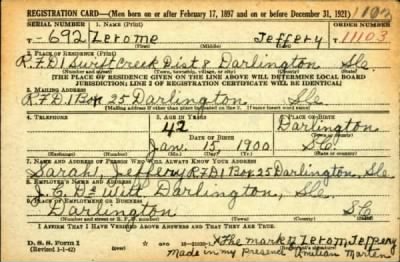 REGISTRATION CARD—(Men born on or after February 17, 1897 and on or before December 31, 1921)
SERIAL NUMBER 1. NAME (Print) ORDER NUMBER
T-692 Zerome Jeffery 11103
(First) (Middle) (Last)
2. PLACE OF RESIDENCE (Print)
R.F.D.1 Swift Creek Dist 8 Darlington S.C.
(Number and street) (Town, township, village, or city) (County) (State)
[THE PLACE OF RESIDENCE GIVEN ON THE LINE ABOVE WILL DETERMINE LOCAL BOARD
JURISDICTION; LINE 2 OF REGISTRATION CERTIFICATE WILL BE IDENTICAL]
3. MAILING ADDRESS
R.F.D.1 Box 25 Darlington, S.C.
(Mailing address if other than place indicated on line 2. If same insert word same)
4. TELEPHONE 5. AGE IN YEARS 6. PLACE OF BIRTH
42 Darlington
DATE OF BIRTH (Town or county)
Jan. 15, 1900 S.C.
(Exchange) (Number) (Mo.) (Day) (Yr.) (State or country)
7. NAME AND ADDRESS OF PERSON WHO WILL ALWAYS KNOW YOUR ADDRESS
Sarah, Jeffery R.F.D.1 Box 25 Darlington, S.C.
8. EMPLOYER'S NAME AND ADDRESS
Witt Darlington, S.C.
9. PLACE OF EMPLOYMENT OR BUSINESS
Darlington S.C.
(Number and street or R. F. D. number) (Town) (County) (State)
I AFFIRM THAT I HAVE VERIFIED ABOVE ANSWERS AND THAT THEY ARE TRUE.
D. S. S. FORM 1
(Revised 1-1-42)
X The mark of Zerom Jeffery
made in my presence